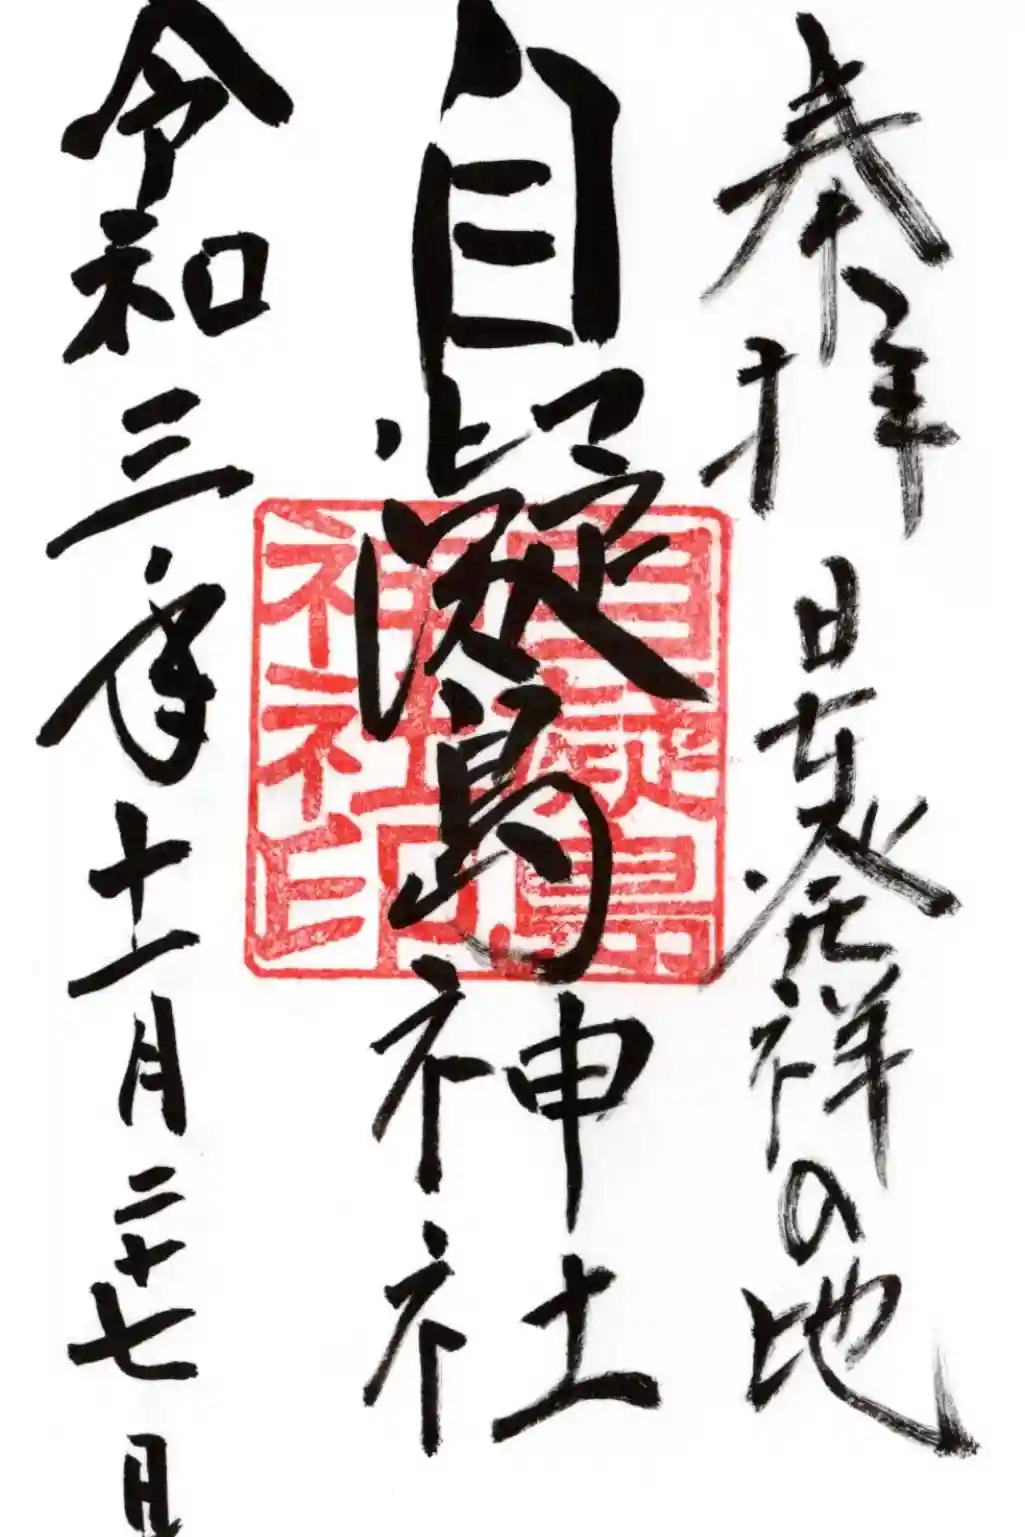 奉拝
日本発祥の地
自凝島神社
自凝島
神社印
令和三年十一月二十七日